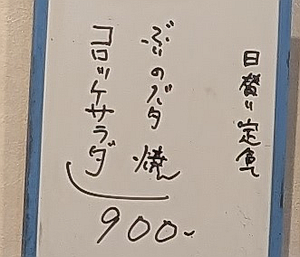 日替り定食
ぶりのバタ焼
コロッケサラダ
900-